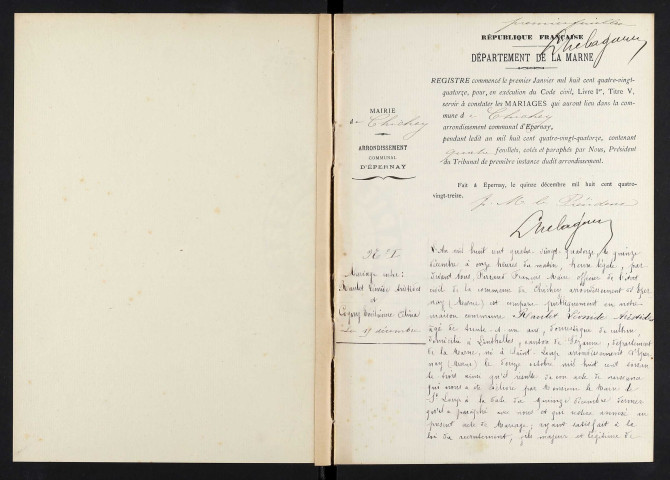 premier feuillet
RÉPUBLIQUE FRANÇAISE
DÉPARTEMENT DE LA MARNE
REGISTRE commencé le premier Janvier mil huit cent quatre-vingt-
quatorze, pour, en exécution du Code civil, Livre Ier, Titre V,
servir à constater les MARIAGES qui auront lieu dans la com-
mune d e Chichey
arrondissement communal d'Epernay,
pendant ledit an mil huit cent quatre-vingt-quatorze, contenant
quatre feuillets, cotés et paraphés par Nous, Président
du Tribunal de première instance dudit arrondissement.
MAIRIE
de Chichey
ARRONDISSEMENT
COMMUNAL
D'ÉPERNAY
Fait à Epernay, le quinze décembre mil huit cent quatre-
vingt-treize.
No 1
Mariage entre :
et
Le décembre
L'An mil huit cent quatre-vingt quatorze, le quinze
décembre à onze heures du matin, heure légale, par
devant nous, François Maire officier de l'état
civil de la commune de Chichey arrondissement d'Eper
nay (Marne) est comparu publiquement en notre
maison commune
âgé de trente et un ans, domestique de culture
domicilié à Linthelles, canton de Sézanne, département
de la Marne, né à Saint-Loup arrondissement d'Eper
nay (Marne) le douze octobre mil huit cent soixan
te trois ainsi qu'il résulte de son acte de naissance
qui nous a été délivré par Monsieur le Maire de
St Loup à la date du quinze décembre dernier
qu'il a paraphé avec nous et qui restera annexé au
présent acte de Mariage, ayant satisfait à la
loi du recrutement, fils majeur et légitime de